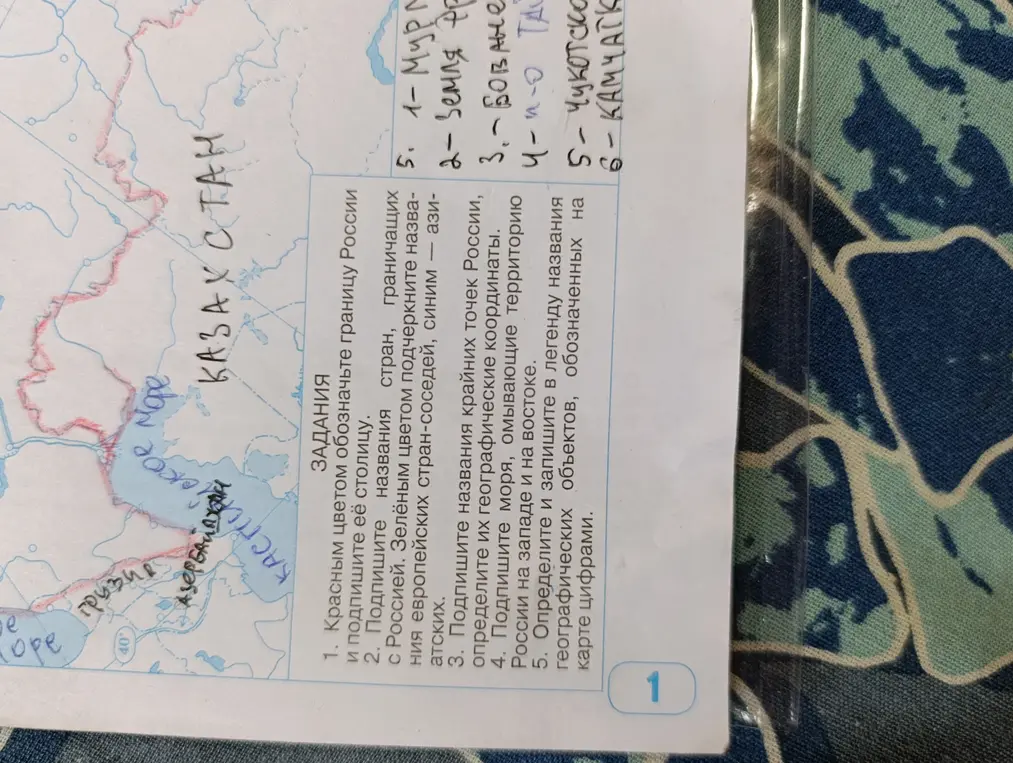 КАЗАХСТАН
Каспийское море
Грузия
Азербайджан
Море
40°
ЗАДАНИЯ
1. Красным цветом обозначьте границу России
и подпишите её столицу.
2. Подпишите названия стран, граничащих
с Россией. Зелёным цветом подчеркните назва-
ния европейских стран-соседей, синим — ази-
атских.
3. Подпишите названия крайних точек России,
определите их географические координаты.
4. Подпишите моря, омывающие территорию
России на западе и на востоке.
5. Определите и запишите в легенду названия
географических объектов, обозначенных на
карте цифрами.
5. 1 – Мурм
2 – Земля Фр
3. – Боване
4 – п-о ТАЙ
5 – Чукотско
6 – КАМЧАТК
1